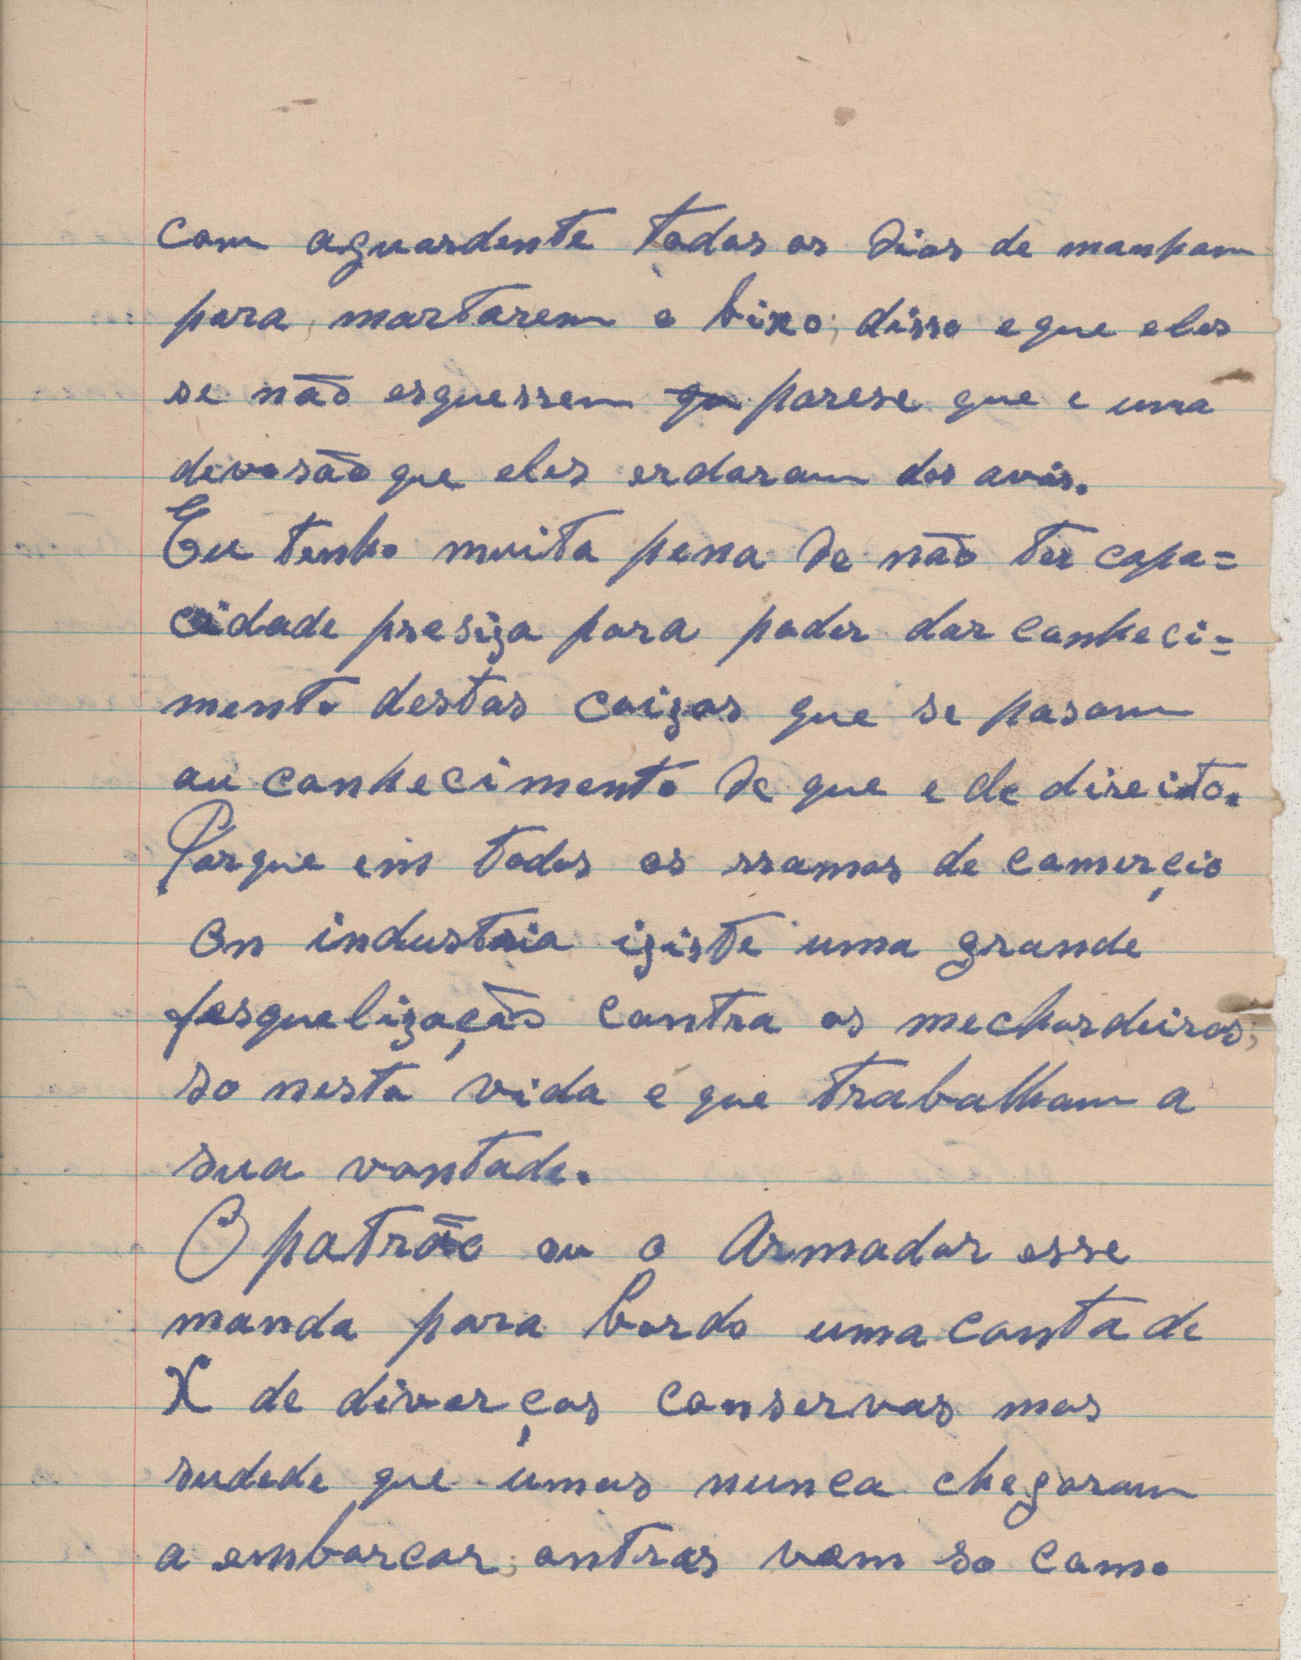 com aguardente todos os dias de manham
para martarem o bixo; disso e que eles
se não esquessem qu parese que e uma
devosão que eles erdaram dos avós.
Eu tenho muita pena de não ter capa=
cidade presiza para poder dar conheci=
mento destas coizas que se pasam
au conhecimento de que e de direito.
Porque em todos os rramos de comerçio
on industria iziste uma grande
fesquelização contra os mechordeiros,
so nesta vida é que trabalham a
sua vontade.
O patrão ou o Armador esse
manda para bordo uma conta de
X de diverças conservas mas
sudede que umas nunca chegaram
a embarcar; outras vem so como